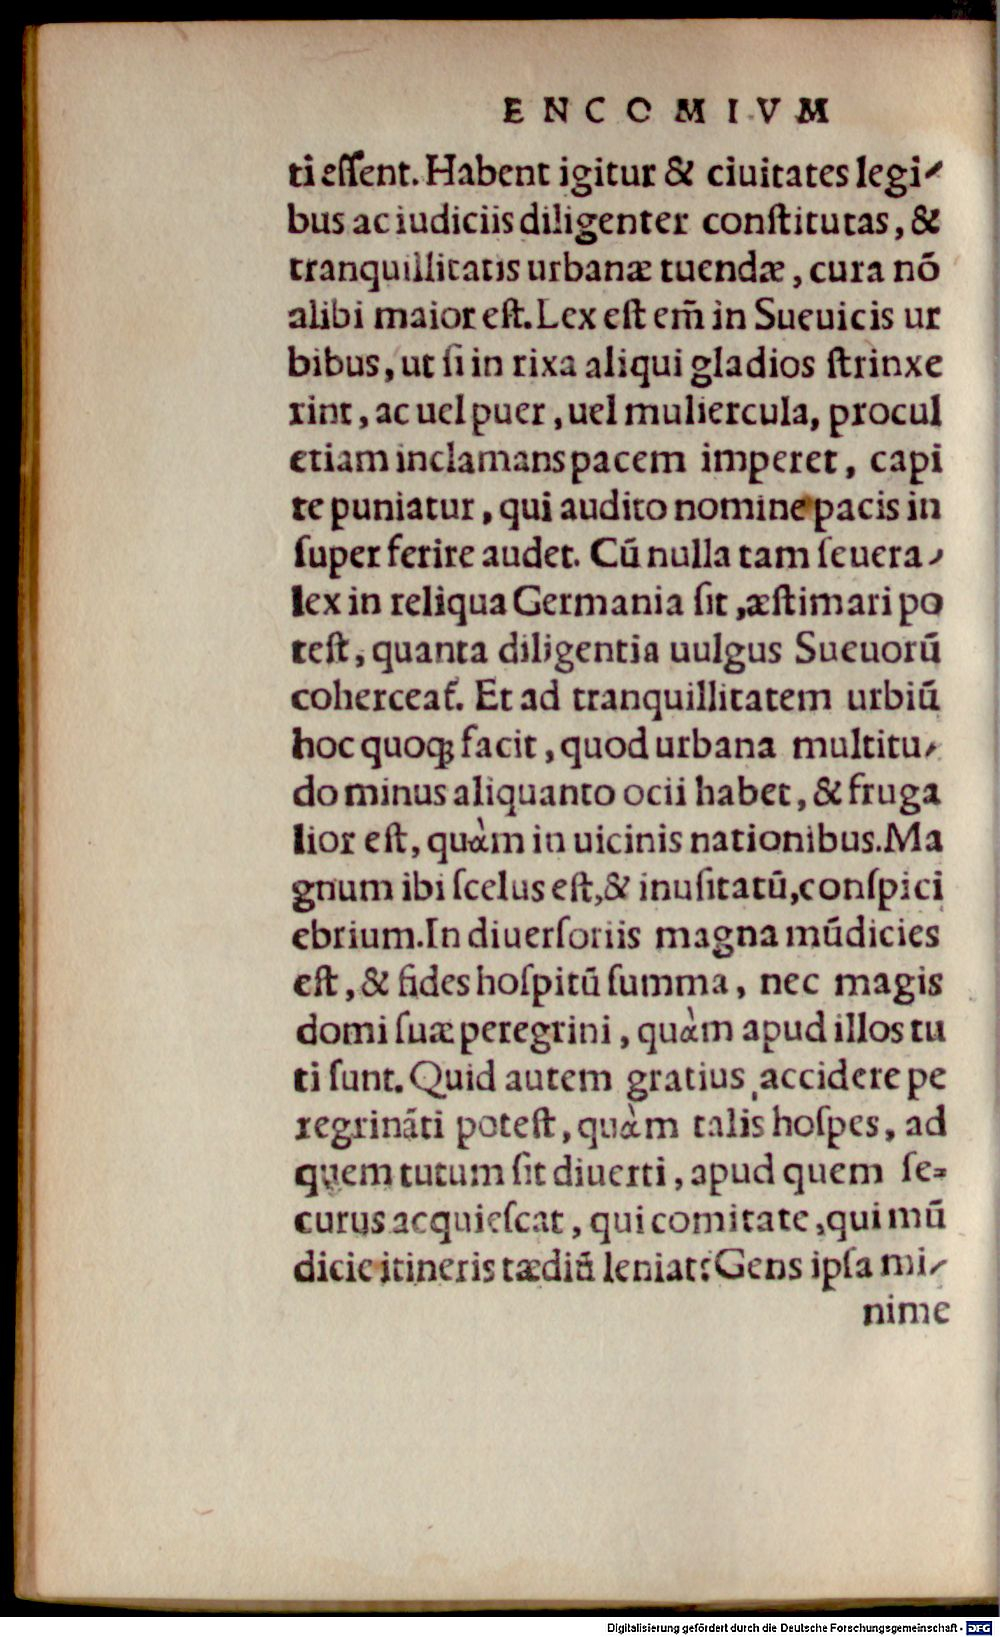 ENCOMIVM
ti eſſent. Habent igitur & ciuitates legi-
bus ac iudiciis diligenter conſtitutas, &
tranquillitatis urbanæ tuendæ, cura nõ
alibi maior eſt. Lex eſt em̃ in Sueuicis ur
bibus, ut ſi in rixa aliqui gladios ſtrinxe
rint, ac uel puer, uel muliercula, procul
etiam inclamans pacem imperet, capi
te puniatur, qui audito nomine pacis in
ſuper ferire audet. Cũ nulla tam ſeuera-
lex in reliqua Germania ſit, æſtimari po
teſt, quanta diligentia uulgus Sueuorũ
coherceat᷑. Et ad tranquillitatem urbiũ
hoc quoq; facit, quod urbana multitu-
do minus aliquanto ocii habet, & fruga
lior eſt, quàm in uicinis nationibus. Ma
gnum ibi ſcelus eſt, & inuſitatũ, conſpici
ebrium. In diuerſoriis magna mũdicies
eſt, & fides hoſpitũ ſumma, nec magis
domi ſuæ peregrini, quàm apud illos tu
ti ſunt. Quid autem gratius accidere pe
regrinãti poteſt, quàm talis hoſpes, ad
quem tutum ſit diuerti, apud quem ſe=
curus acquieſcat, qui comitate, qui mũ
dicie itineris tædiũ leniat: Gens ipſa mi-
nime
Digitalisierung gefördert durch die Deutsche Forschungsgemeinschaft - DFG